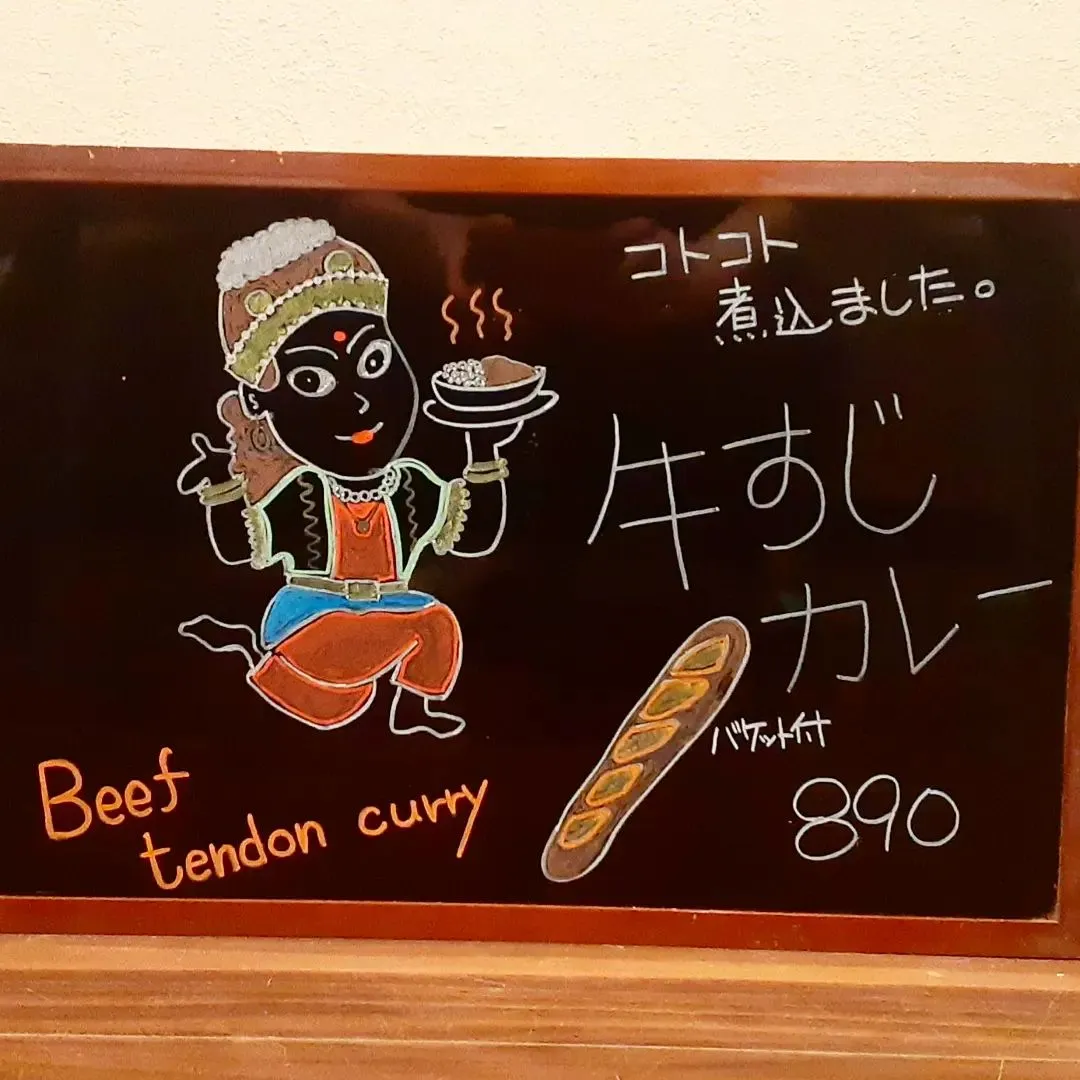 コトコト
煮込ました。
牛すじ
カレー
バケット付
890
Beef
tendon curry